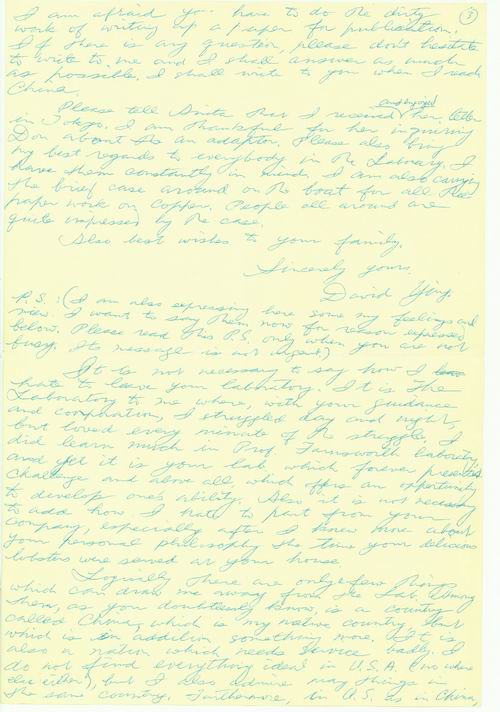 3
I am afraid you have to do the dirty
work of writing up a paper for publication.
If there is any question, please don't hesitate
to write to me and I shall answer as much
as possible. I shall write to you when I reach
China.
Please tell Anita that I received and enjoyed her letter
in Tokyo. I am thankful for her inquiring
Don about the an adaptor. Please also bring
my best regards to everybody in the Laboratory. I
have them constantly in mind. I am also carrying
the brief case around on the boat for all the
paper work on copper. People all around are
quite impressed by the case.
Also best wishes to your family.
Sincerely yours,
David Ying.
P.S.: (I am also expressing here some my feelings and
view. I want to say them now for reason expressed
below. Please read this P.S. only when you are not
busy. Its message is not urgent.)
It is not necessary to say how I
hate to leave your laboratory. It is the
Laboratory to me where, with your guidance
and cooperation, I struggled day and night,
but loved every minute of the struggle. I
did learn much in Prof. Farnsworth laboratory
and yet it is your lab which forever presents
challenge and above all, which offers an opportunity
to develop one's ability. Also it is not necessary
to add how I hate to part from your
company, especially after I knew more about
your personal philosophy the time your delicious
lobsters were served at your house.
Logically there are only few things
which can draw me away from the Lab. Among
them, as you doubtlessly know, is a country
called China, which is my native country, but
which is in addition something more. It is
also a nation which needs service badly. I
do not find everything ideal in U.S.A. (no where
else either), but I also admire many things in
the same country. Furthermore, in U.S. as in China,